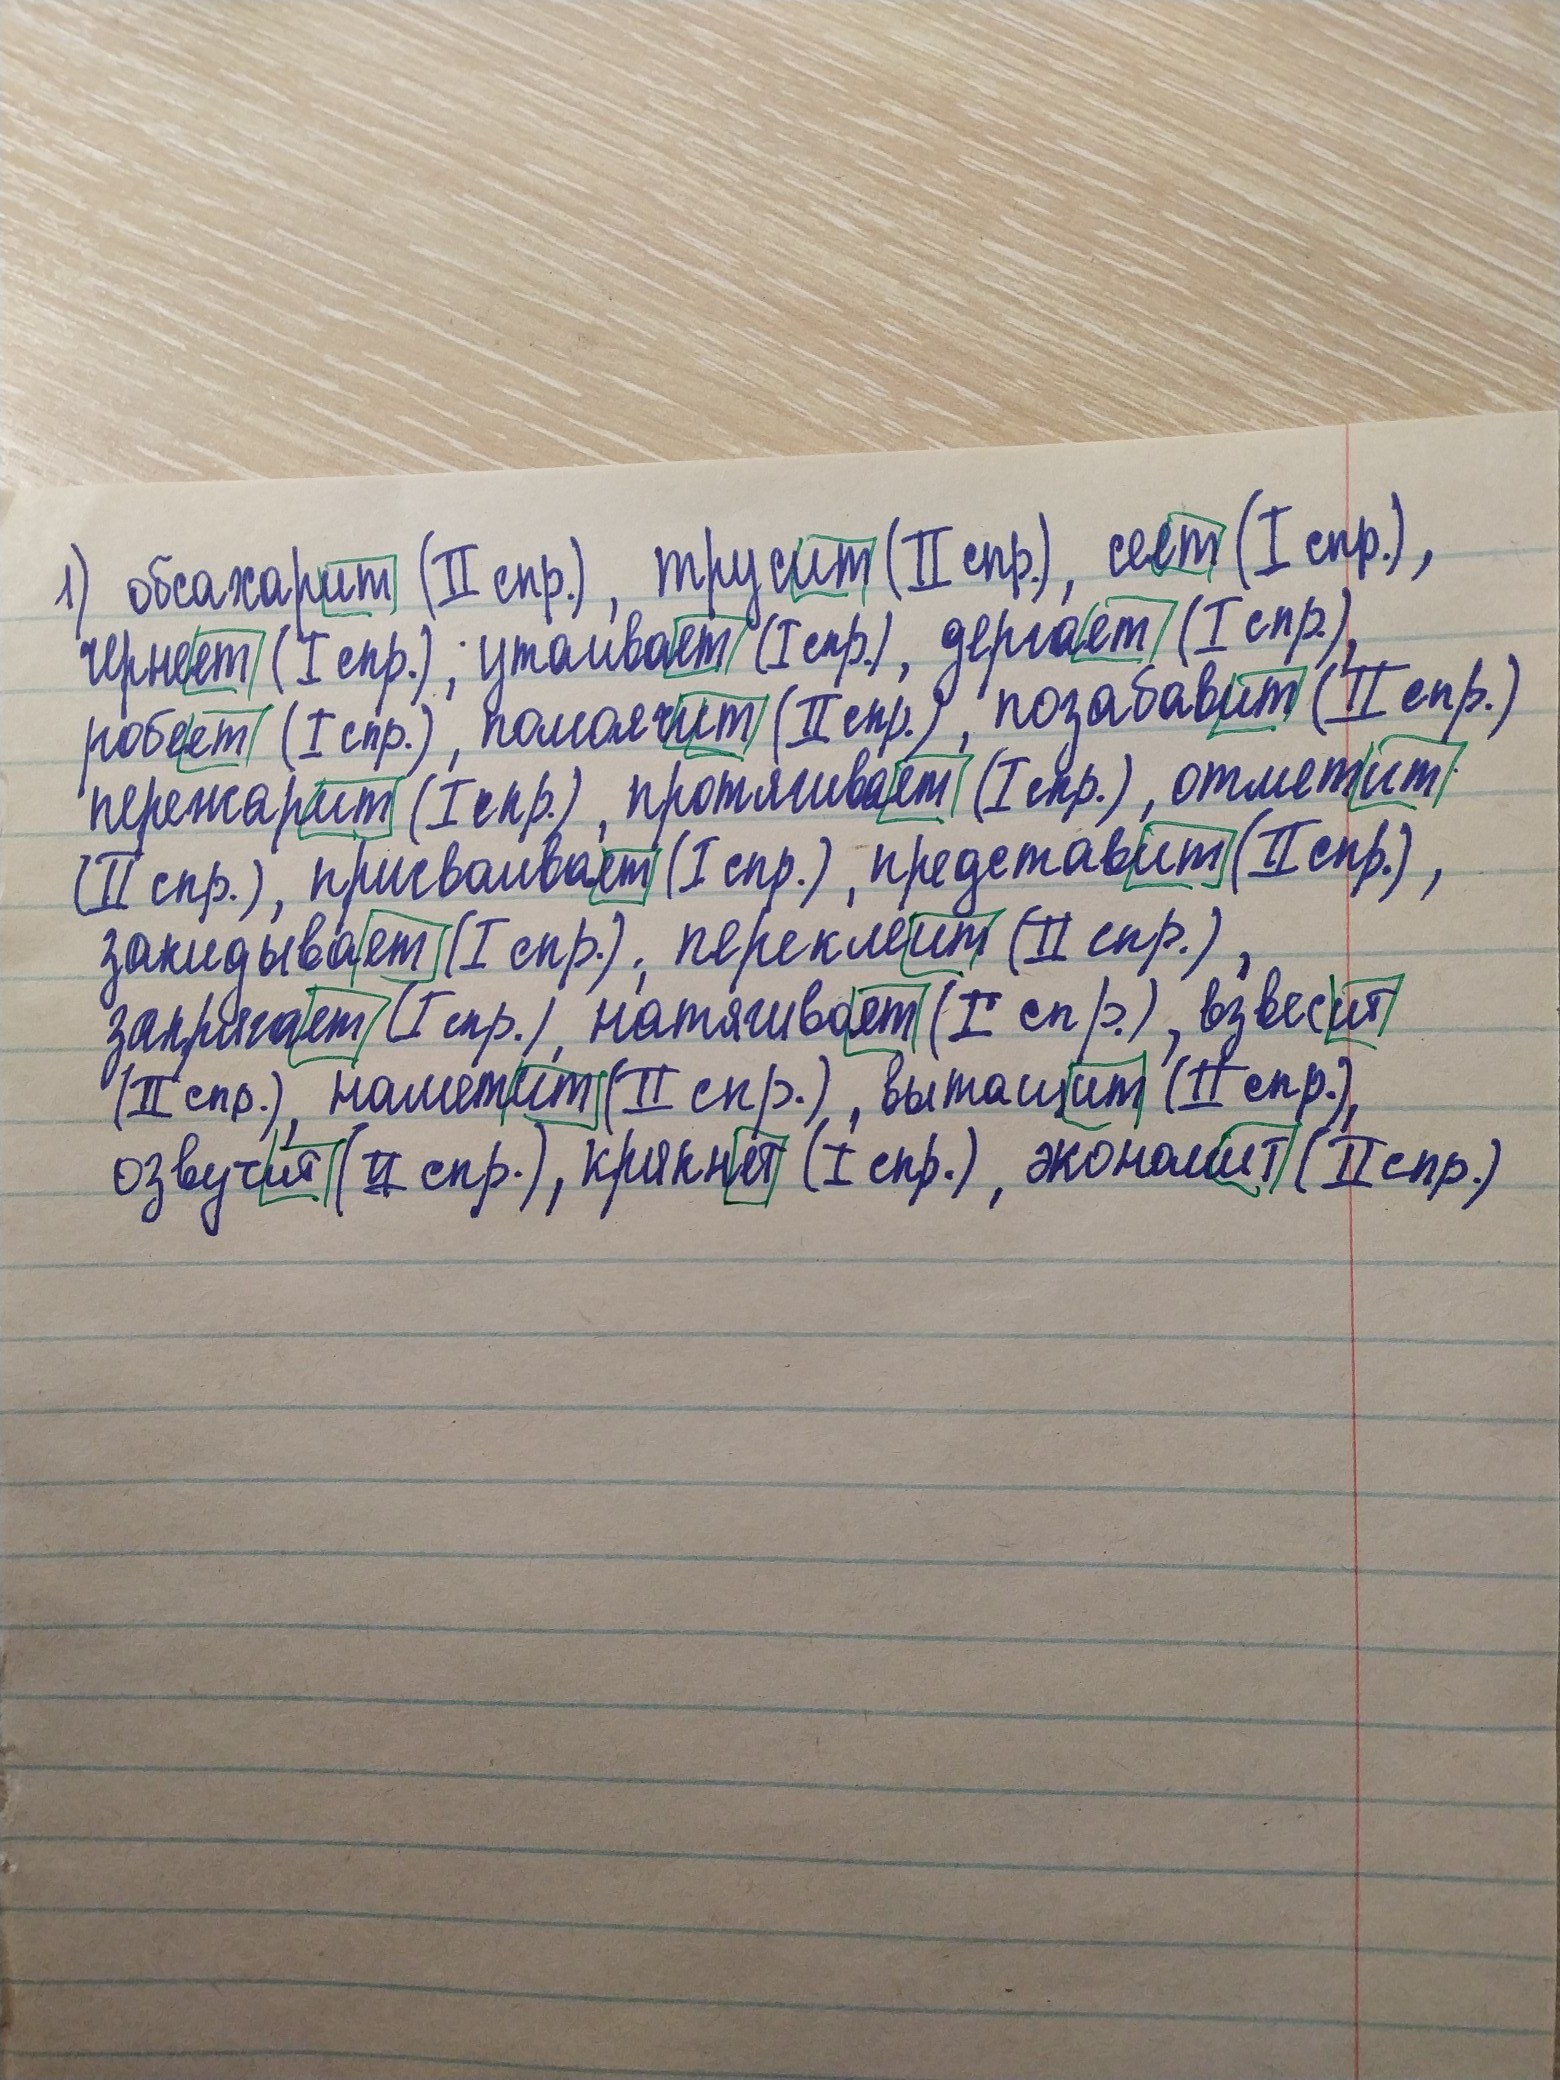 1) обсахарит (II спр.), трусит (II спр.), сеет (I спр.),
чернеет (I спр.), утаивает (I спр.), дергает (I спр.),
робеет (I спр.), помолчит (II спр.), позабавит (II спр.)
пережарит (I спр.), протягивает (I спр.), отметит
(II спр.), присваивает (I спр.), представит (II спр.),
закидывает (I спр.), переклеит (II спр.),
запрягает (I спр.), натягивает (I спр.), взвесит
(II спр.), наметит (II спр.), вытащит (II спр.),
озвучит (II спр.), крякнет (I спр.), экономит (II спр.)